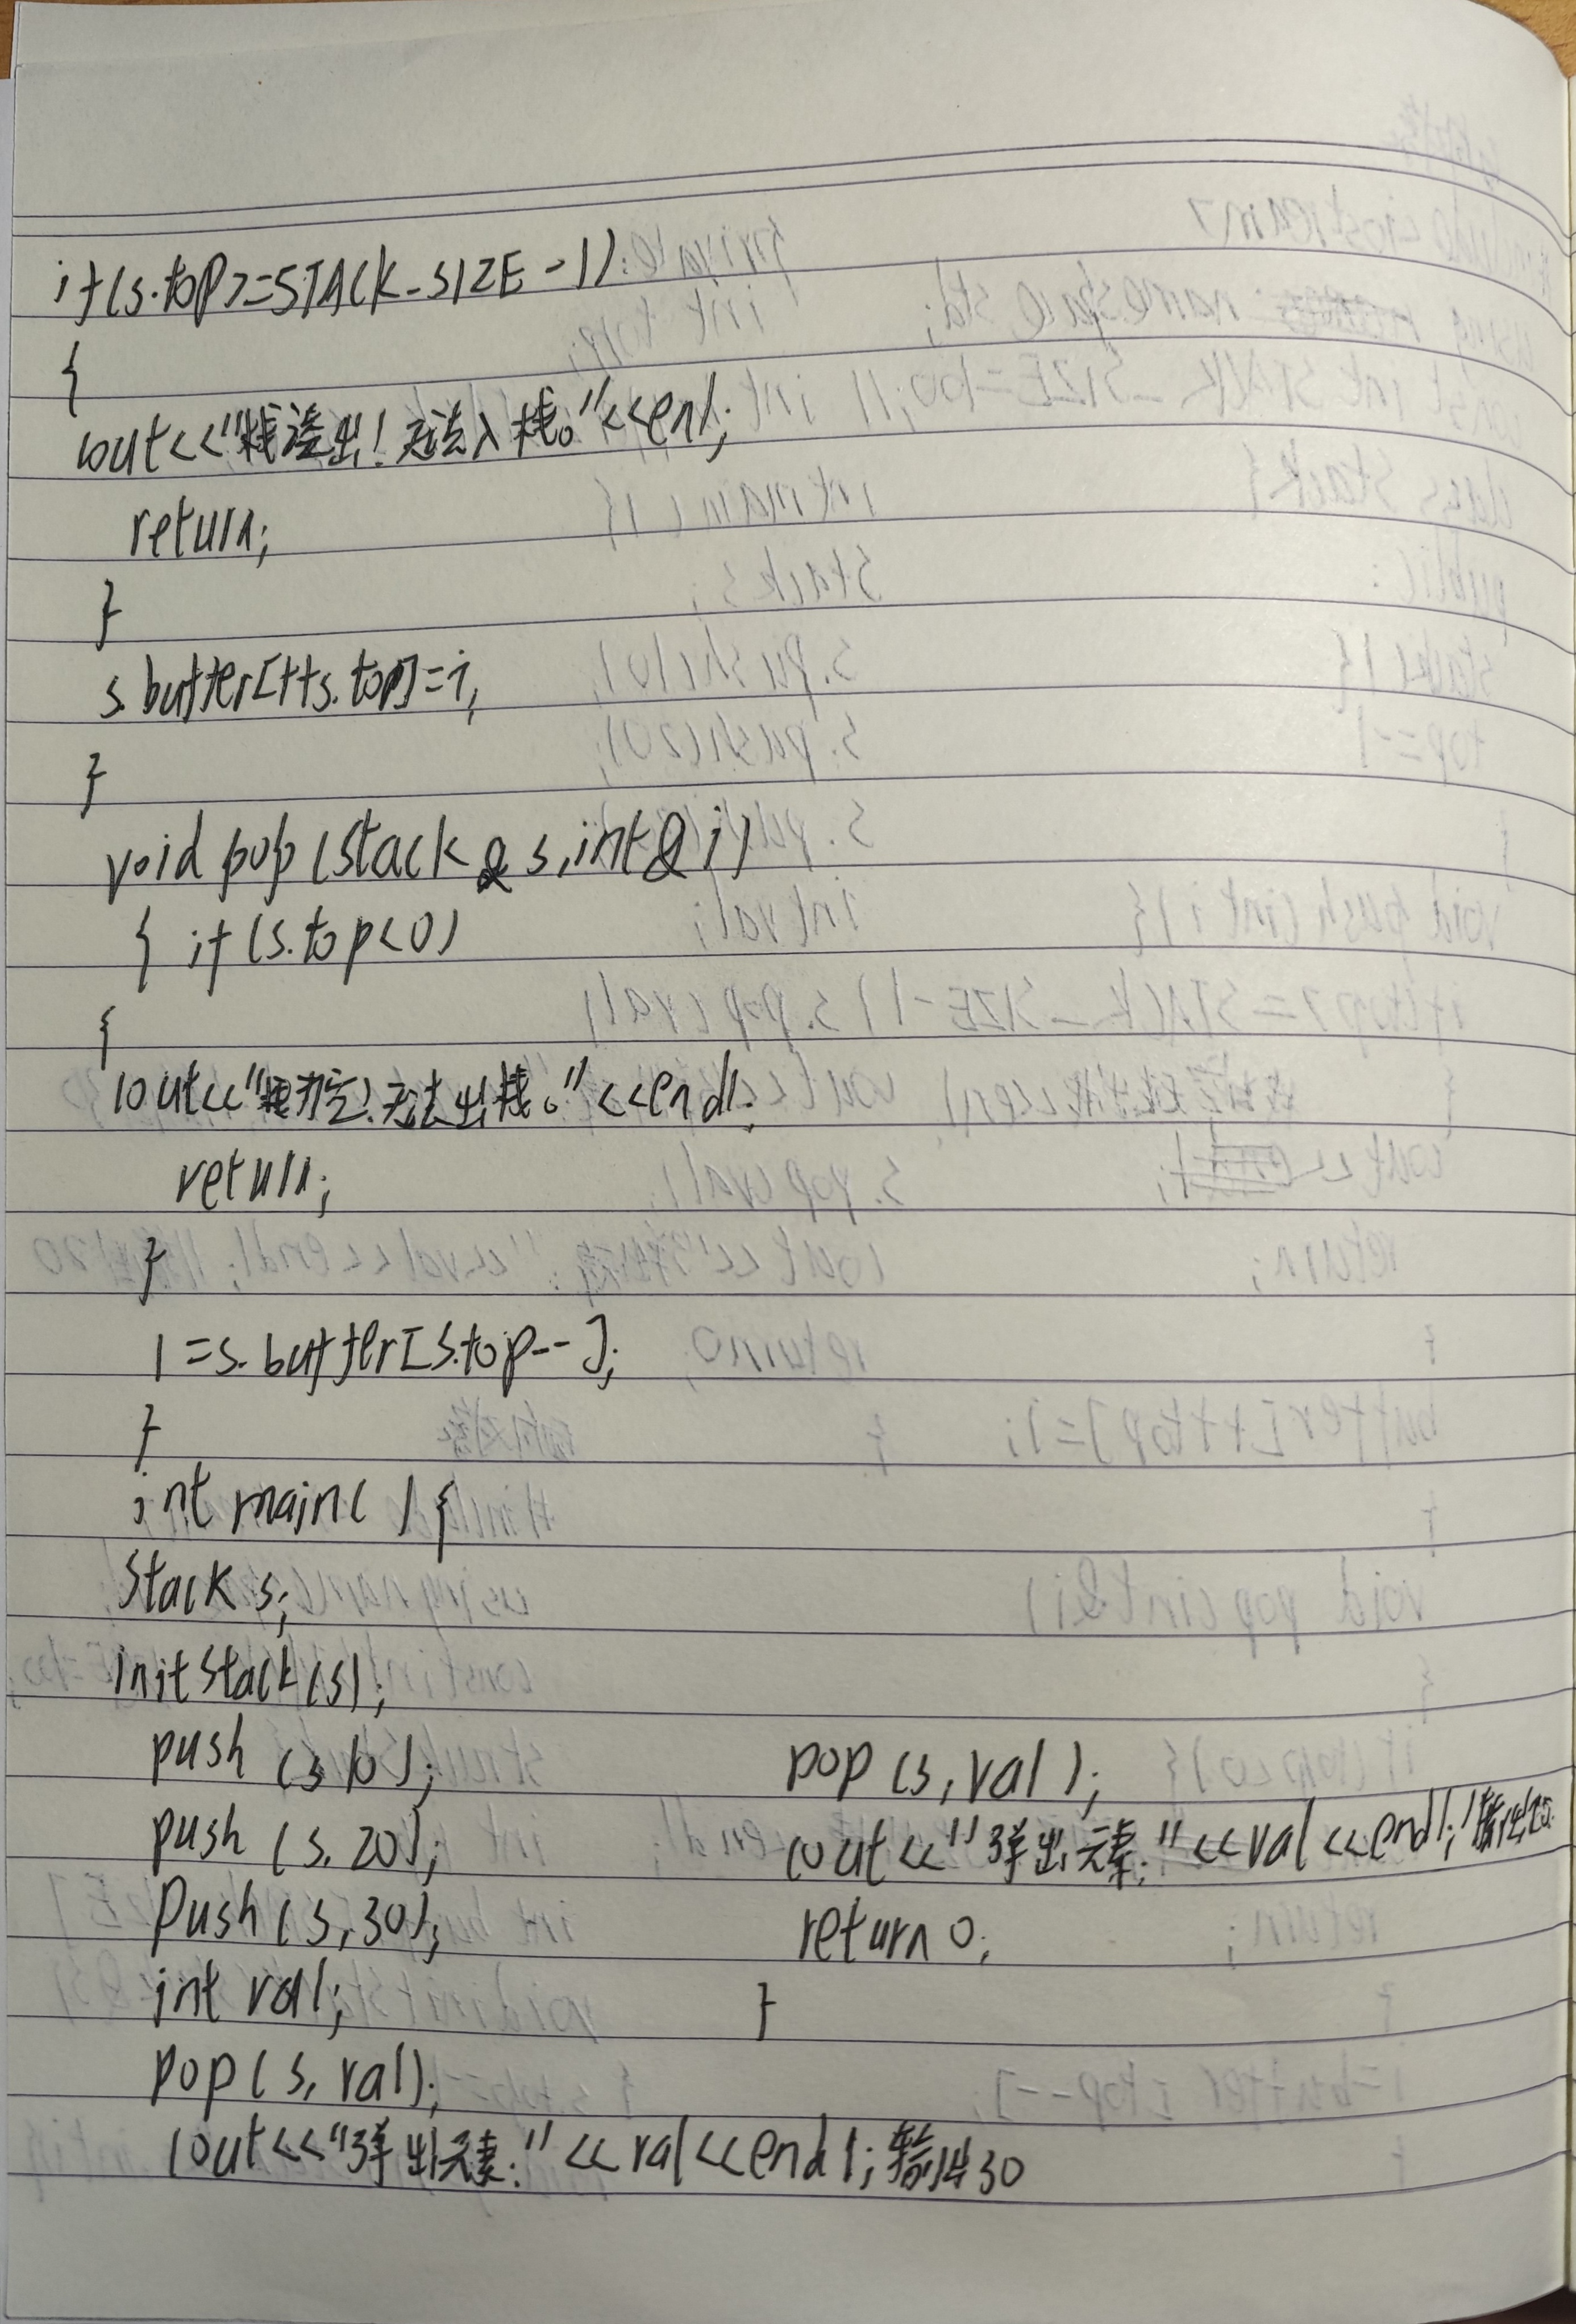 if(s.top>=STACK_SIZE-1)
{
cout<<"栈溢出!无法入栈。"<<enl;
return;
}
s.buffer[++s.top]=i;
}
void pop(Stack & s,int & i)
{ if(s.top<0)
{
cout<<"栈为空!无法出栈。"<<endl;
return;
}
i=s.buffer[s.top--];
}
int main( ){
Stack s;
initStack(s);
push (s,10);
push (s,20);
Push (s,30);
int val;
pop(s,val);
cout<<"弹出元素:"<<val<<endl;输出30
pop(s,val);
cout<<"弹出元素:"<<val<<endl;输出20
return 0;
}